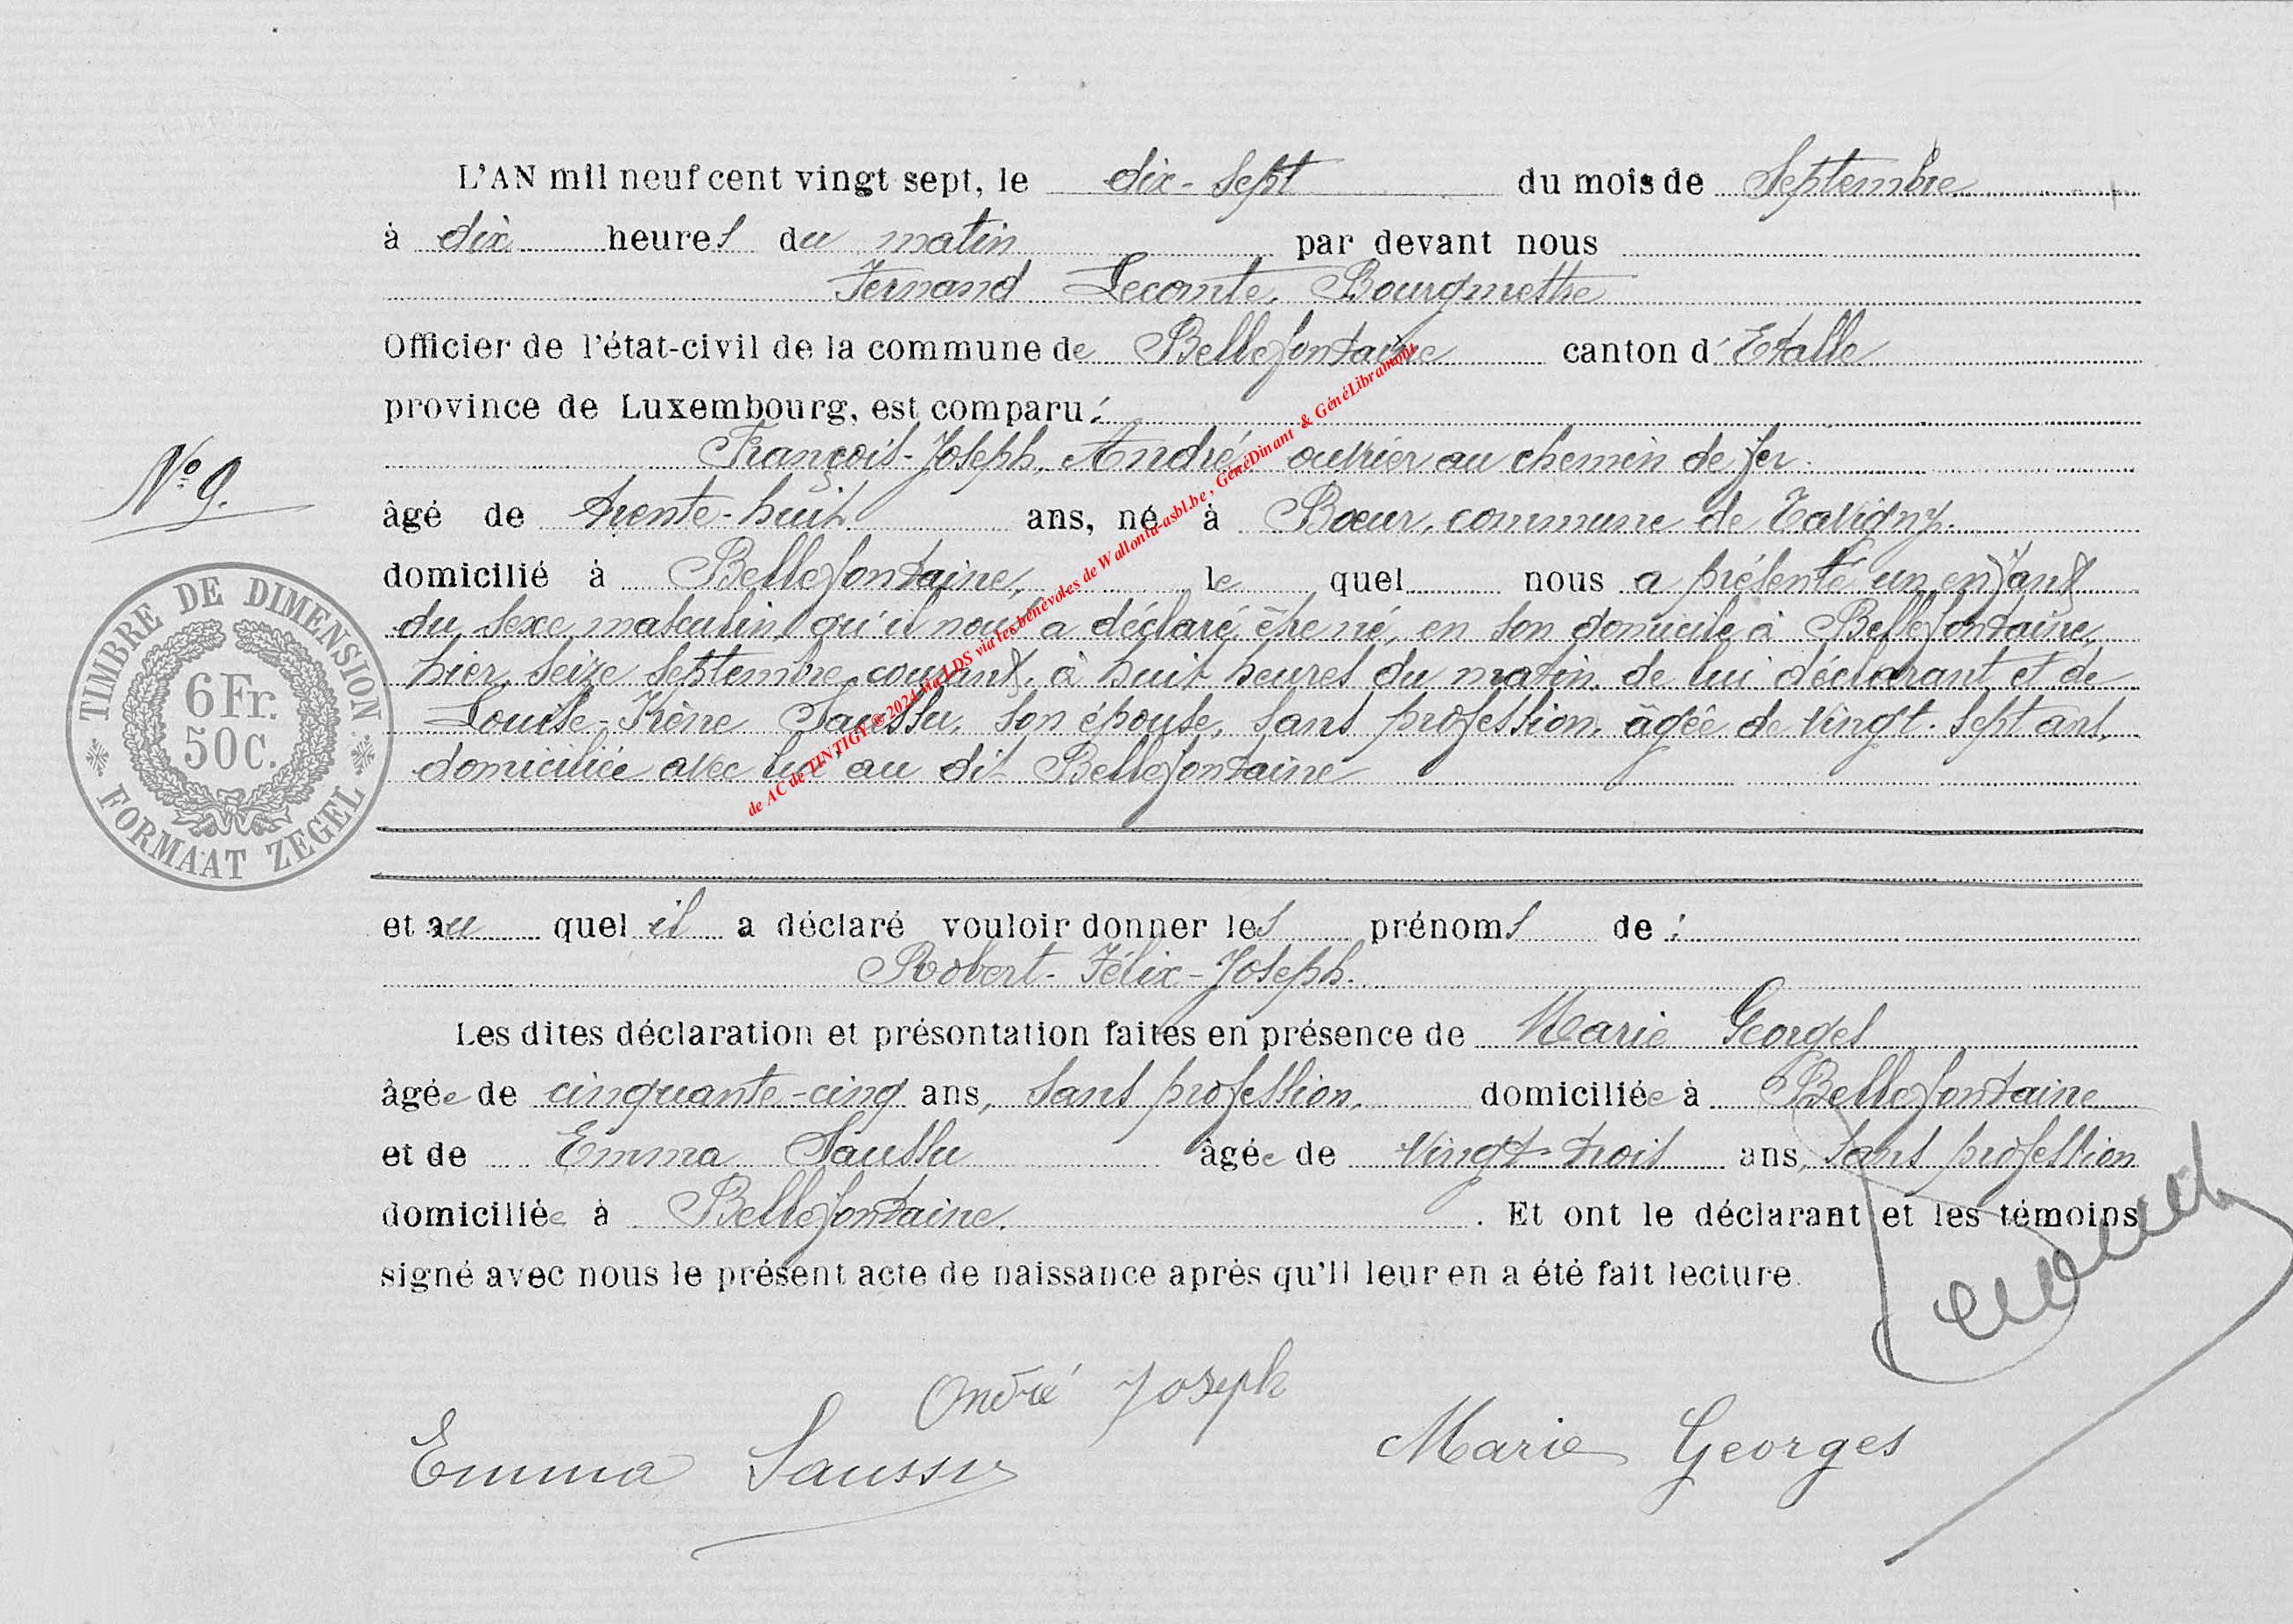 L'AN mil neuf cent vingt sept, le dix-sept du mois de Septembre
à dix heures du matin par devant nous
Fernand Lecomte, Bourgmestre
Officier de l'état-civil de la commune de Bellefontaine canton d'Etalle
province de Luxembourg, est comparu :
François-Joseph André ouvrier au chemin de fer.
N° 9.
âgé de trente-huit ans, né à Boeur, commune de Tavigny.
domicilié à Bellefontaine, le quel nous a présenté un enfant
du sexe masculin qu'il nous a déclaré être né, en son domicile à Bellefontaine,
hier, seize septembre courant, à huit heures du matin, de lui déclarant et de
Louise-Irène Saussu, son épouse, sans profession, âgée de vingt-sept ans,
domiciliée avec lui au dit Bellefontaine
TIMBRE DE DIMENSION
6 Fr.
50 C.
FORMAAT ZEGEL
de AC de TINTIGY ® 2024 via LDS via les bénévoles de Wallonia-asbl.be , GénéDinant & GénéLibramont
et au quel il a déclaré vouloir donner les prénoms de :
Robert-Félix-Joseph.
Les dites déclaration et présontation faites en présence de Marie Georges
âgée de cinquante-cinq ans, sans profession, domiciliée à Bellefontaine
et de Emma Saussu âgée de vingt-trois ans, sans profession
domiciliée à Bellefontaine. . Et ont le déclarant et les témoins
signé avec nous le présent acte de naissance après qu'il leur en a été fait lecture.
André Joseph
Emma Saussu
Marie Georges